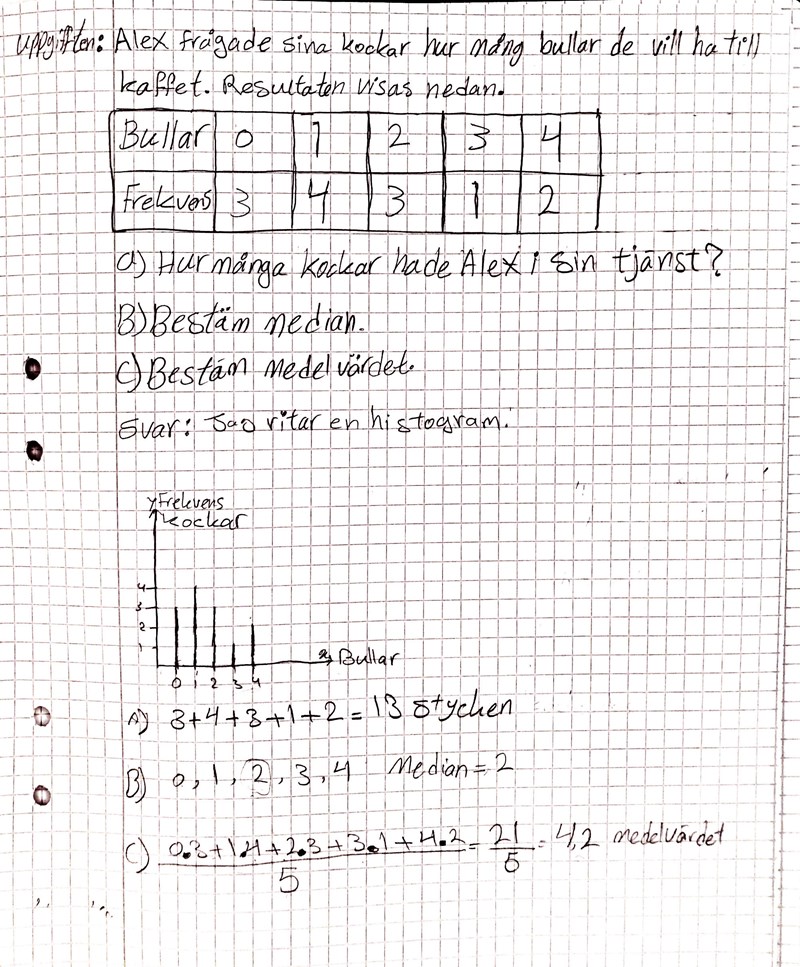 Uppgiften: Alex frågade sina kockar hur mång bullar de vill ha till
kaffet. Resultaten visas nedan.
Bullar 0 1 2 3 4
Frekvens 3 4 3 1 2
a) Hur många kockar hade Alex i sin tjänst?
B) Bestäm median.
C) Bestäm medelvärdet.
Svar: Jag ritar en histogram.
y Frekvens
kockar
4
3
2
1
x Bullar
0 1 2 3 4
A) 3+4+3+1+2 = 13 stycken
B) 0, 1, 2, 3, 4 Median = 2
C) 0.3+1.4+2.3+3.1+4.2 = 21 = 4,2 medelvärdet
5 5